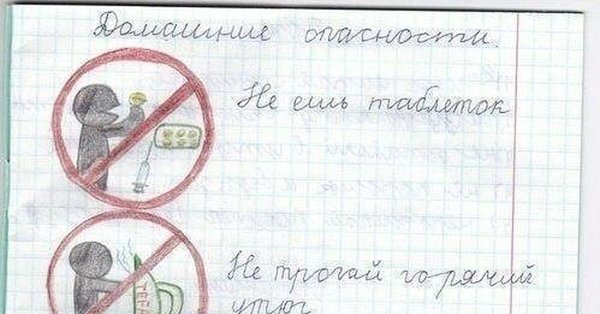 Домашние опасности.
Не ешь таблеток
Не трогай горячий
утюг
TEFA